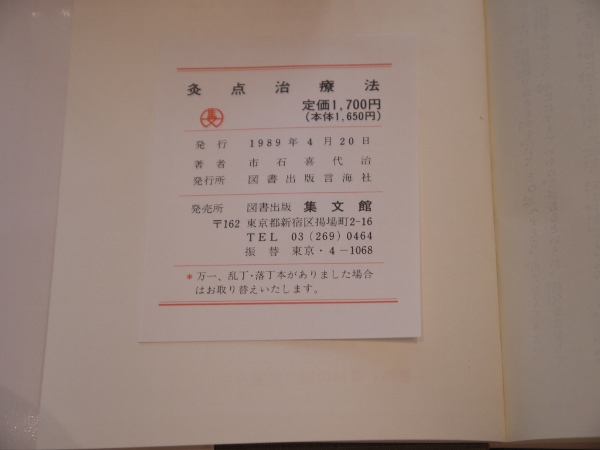 灸点治療法
定価1,700円
(本体1,650円)
発行 1989年4月20日
著者 市石喜代治
発行所 図書出版言海社
発売所 図書出版 集文館
〒162 東京都新宿区揚場町2-16
TEL 03(269)0464
振替 東京・4-1068
*万一、乱丁・落丁本がありました場合
はお取り替えいたします。